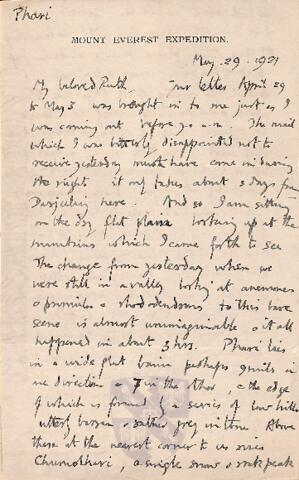 Phari
MOUNT EVEREST EXPEDITION.
May. 29. 1921
My beloved Ruth, Your letter April 29
to May 3 was brought in to me just as I
was coming out before 7 a.m. The mail
which I was bitterly disappointed not to
receive yesterday must have come in during
the night it only takes about 3 days from
Darjeeling here. And so I am sitting
on the dry flat plain looking up at the
mountains which I came forth to see
The change from yesterday when we
were still in a valley looking at anemones
& primulas & rhododendrons to this bare
scene is almost unimaginable & it all
happened in about 3 hrs. Phari lies
in a wide flat basin perhaps 9 miles in
one direction & 7 in the other, & the edge
of which is formed by a series of low hills
utterly brown & rather grey in tone. Above
these at the nearest corner to us rises
Chumolhari, a single snow & rock peak